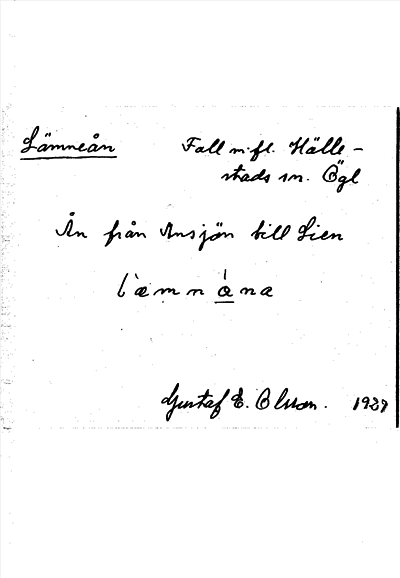 Lämneån Fall m.fl. Hälle-
stads sn. Ögl
Ån från Ansjön till Lien
l`æmn á na
Gustaf E. Olsson. 1929